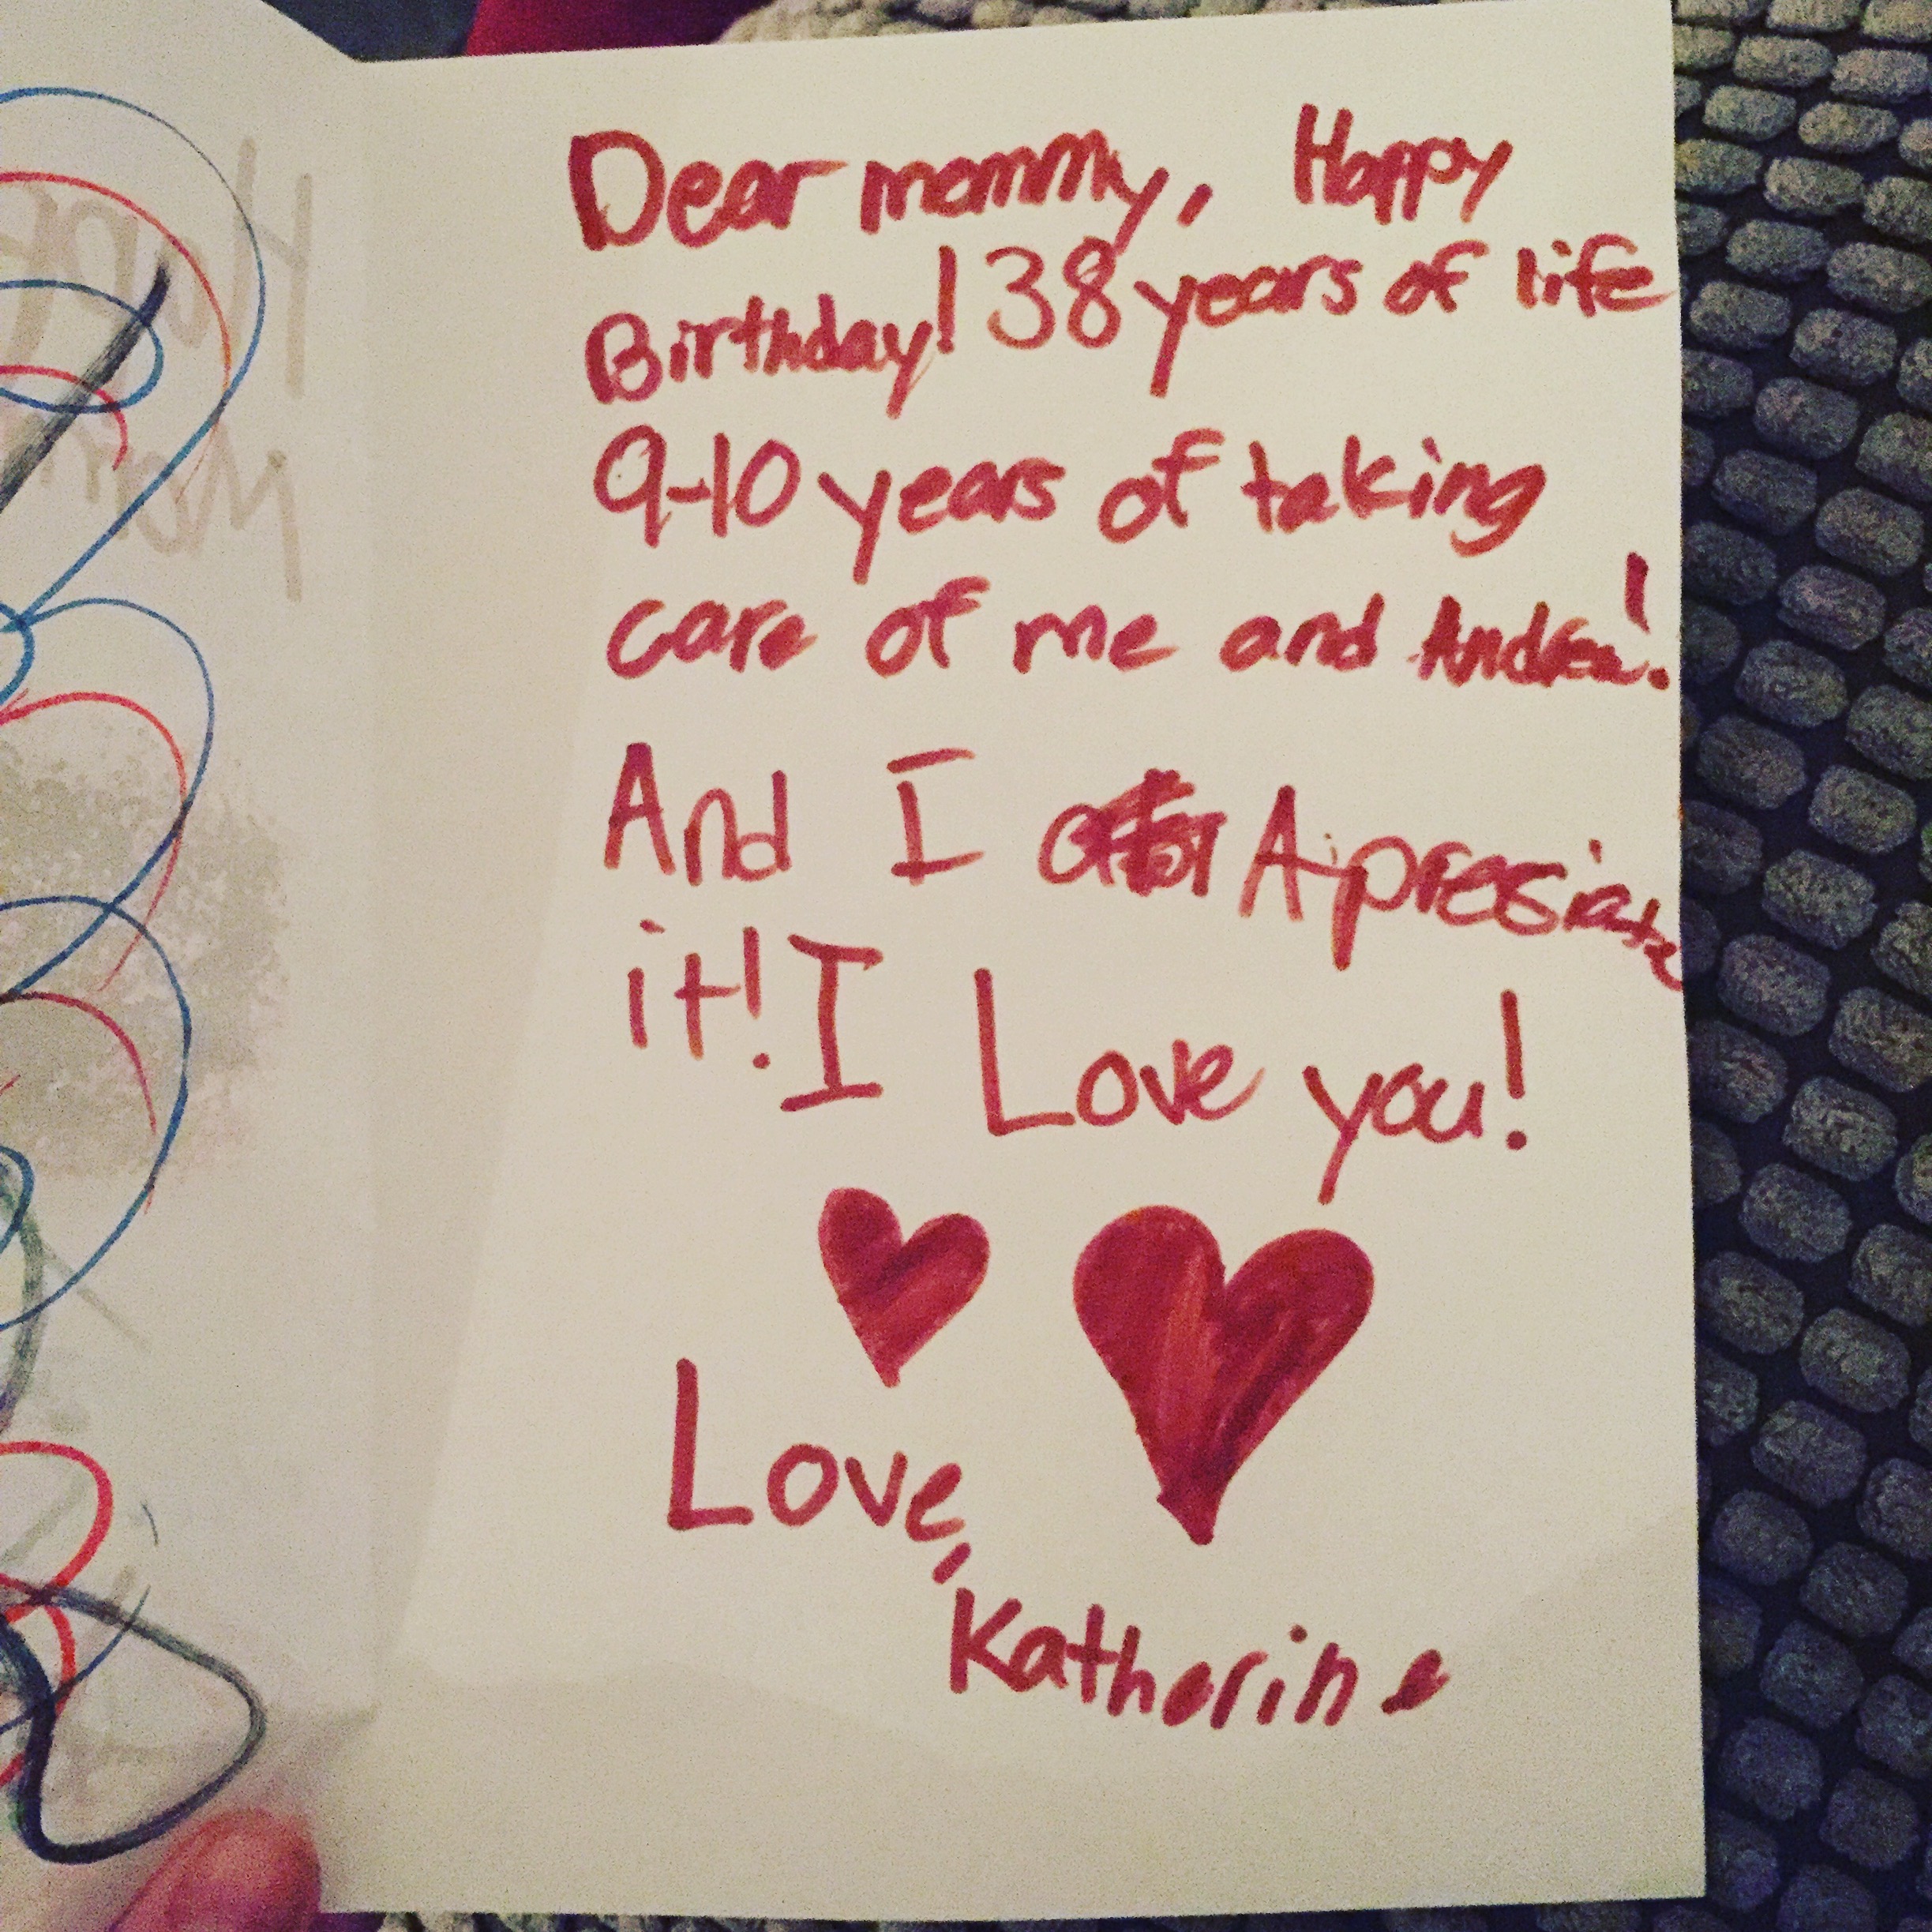 Dear mommy, Happy
Birthday! 38 years of life
9-10 years of taking
care of me and Andrea!
And I Apresiate
it! I Love you!
Love,
Katherine